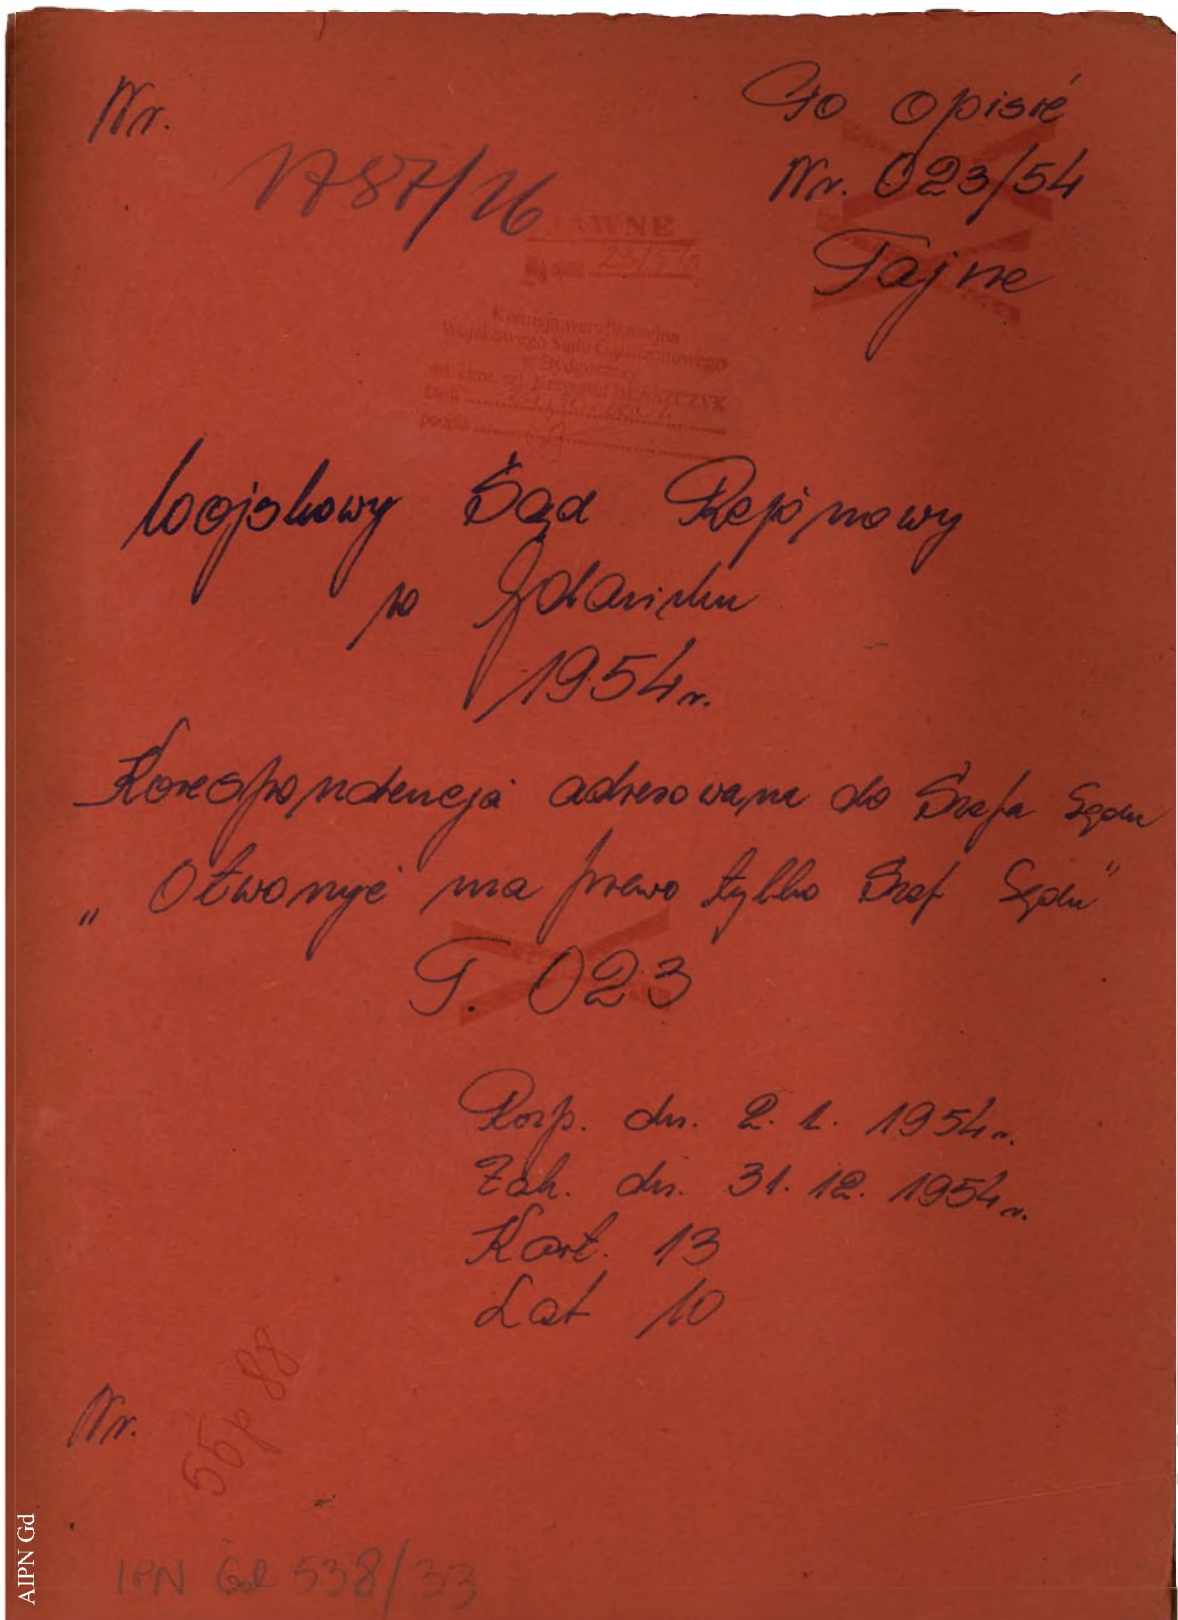 Nr.
1787/26
Go opisie
Nr. 023/54
Tajne
JAWNE
Komisja weryfikacyjna
Wojskowego Sądu Garnizonowego
w Bydgoszczy
BŁASZCZYK
podpis
Wojskowy Sąd Rejonowy
w Gdańsku
1954r.
Korespondencja adresowana do Szefa Sądu
„Otworzyć ma prawo tylko Szef Sądu"
T. 023
Rozp. dn. 2. 1. 1954r.
Zak. dn. 31. 12. 1954r.
Kart. 13
Lat 10
Nr.
55p 88
IPN Gd 538/33
AIPN Gd